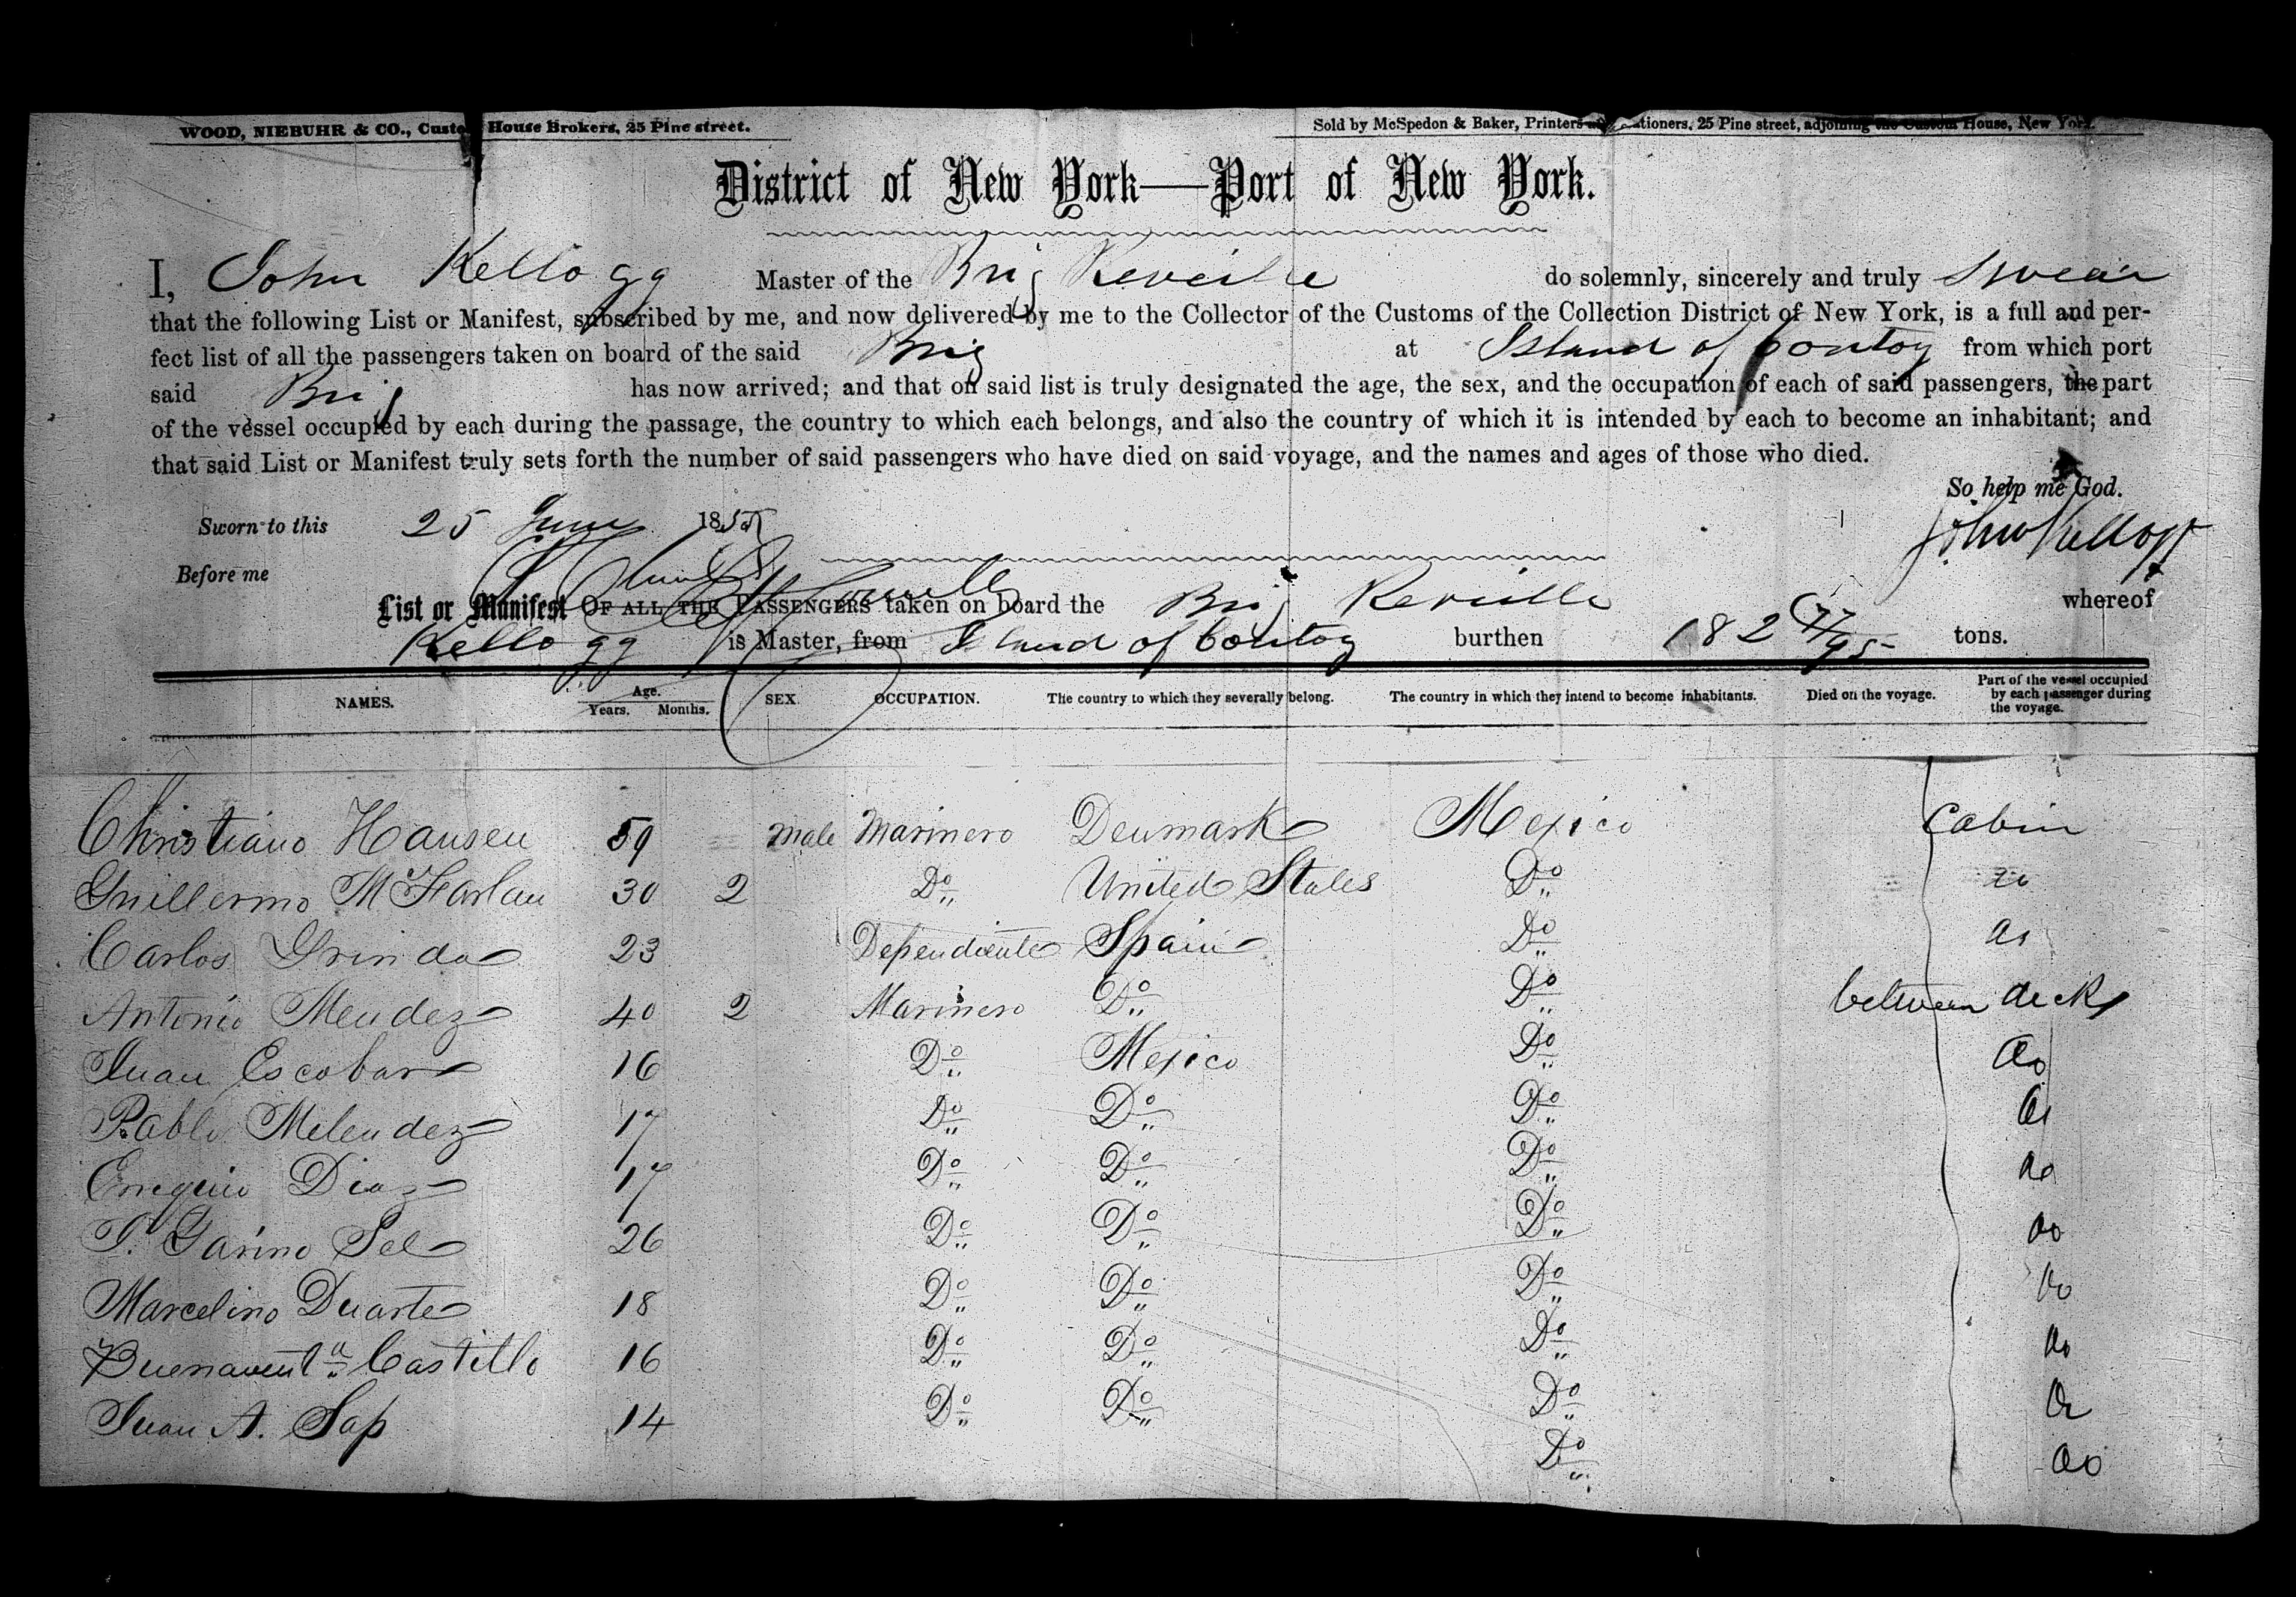 WOOD, NIEBUHR & CO., Custom House Brokers, 25 Pine street.
Sold by McSpedon & Baker, Printers and Stationers, 25 Pine street, adjoining the Custom House, New York.
District of New York—Port of New York.
I, John Kellogg Master of the Brig Reveille do solemnly, sincerely and truly Swear
that the following List or Manifest, subscribed by me, and now delivered by me to the Collector of the Customs of the Collection District of New York, is a full and per-
fect list of all the passengers taken on board of the said Brig at Island of Contoy from which port
said Brig has now arrived; and that on said list is truly designated the age, the sex, and the occupation of each of said passengers, the part
of the vessel occupied by each during the passage, the country to which each belongs, and also the country of which it is intended by each to become an inhabitant; and
that said List or Manifest truly sets forth the number of said passengers who have died on said voyage, and the names and ages of those who died.
So help me God.
Sworn to this 25 June 185
John Kellogg
Before me
List or Manifest OF ALL THE PASSENGERS taken on board the Brig Reveille whereof
Kellogg is Master, from Island of Contoy burthen 182 77/95 tons.
NAMES. Age. Years. Months. SEX OCCUPATION. The country to which they severally belong. The country in which they intend to become inhabitants. Died on the voyage. Part of the vessel occupied by each passenger during the voyage.
Christiano Hansen 59 male Marinero Denmark Mexico Cabin
Guillermo McFarlan 30 2 Do United States Do do
Carlos Grinda 23 Dependiente Spain Do do
Antonio Mendez 40 2 Marinero Do Do between decks
Juan Escobar 16 Do Mexico Do do
Pablo Melendez 17 Do Do Do do
Diaz 17 Do Do Do do
26 Do Do Do do
Marcelino Duarte 18 Do Do Do do
Buenaventa Castillo 16 Do Do Do do
Juan A. Sap 14 Do Do Do do
Do do